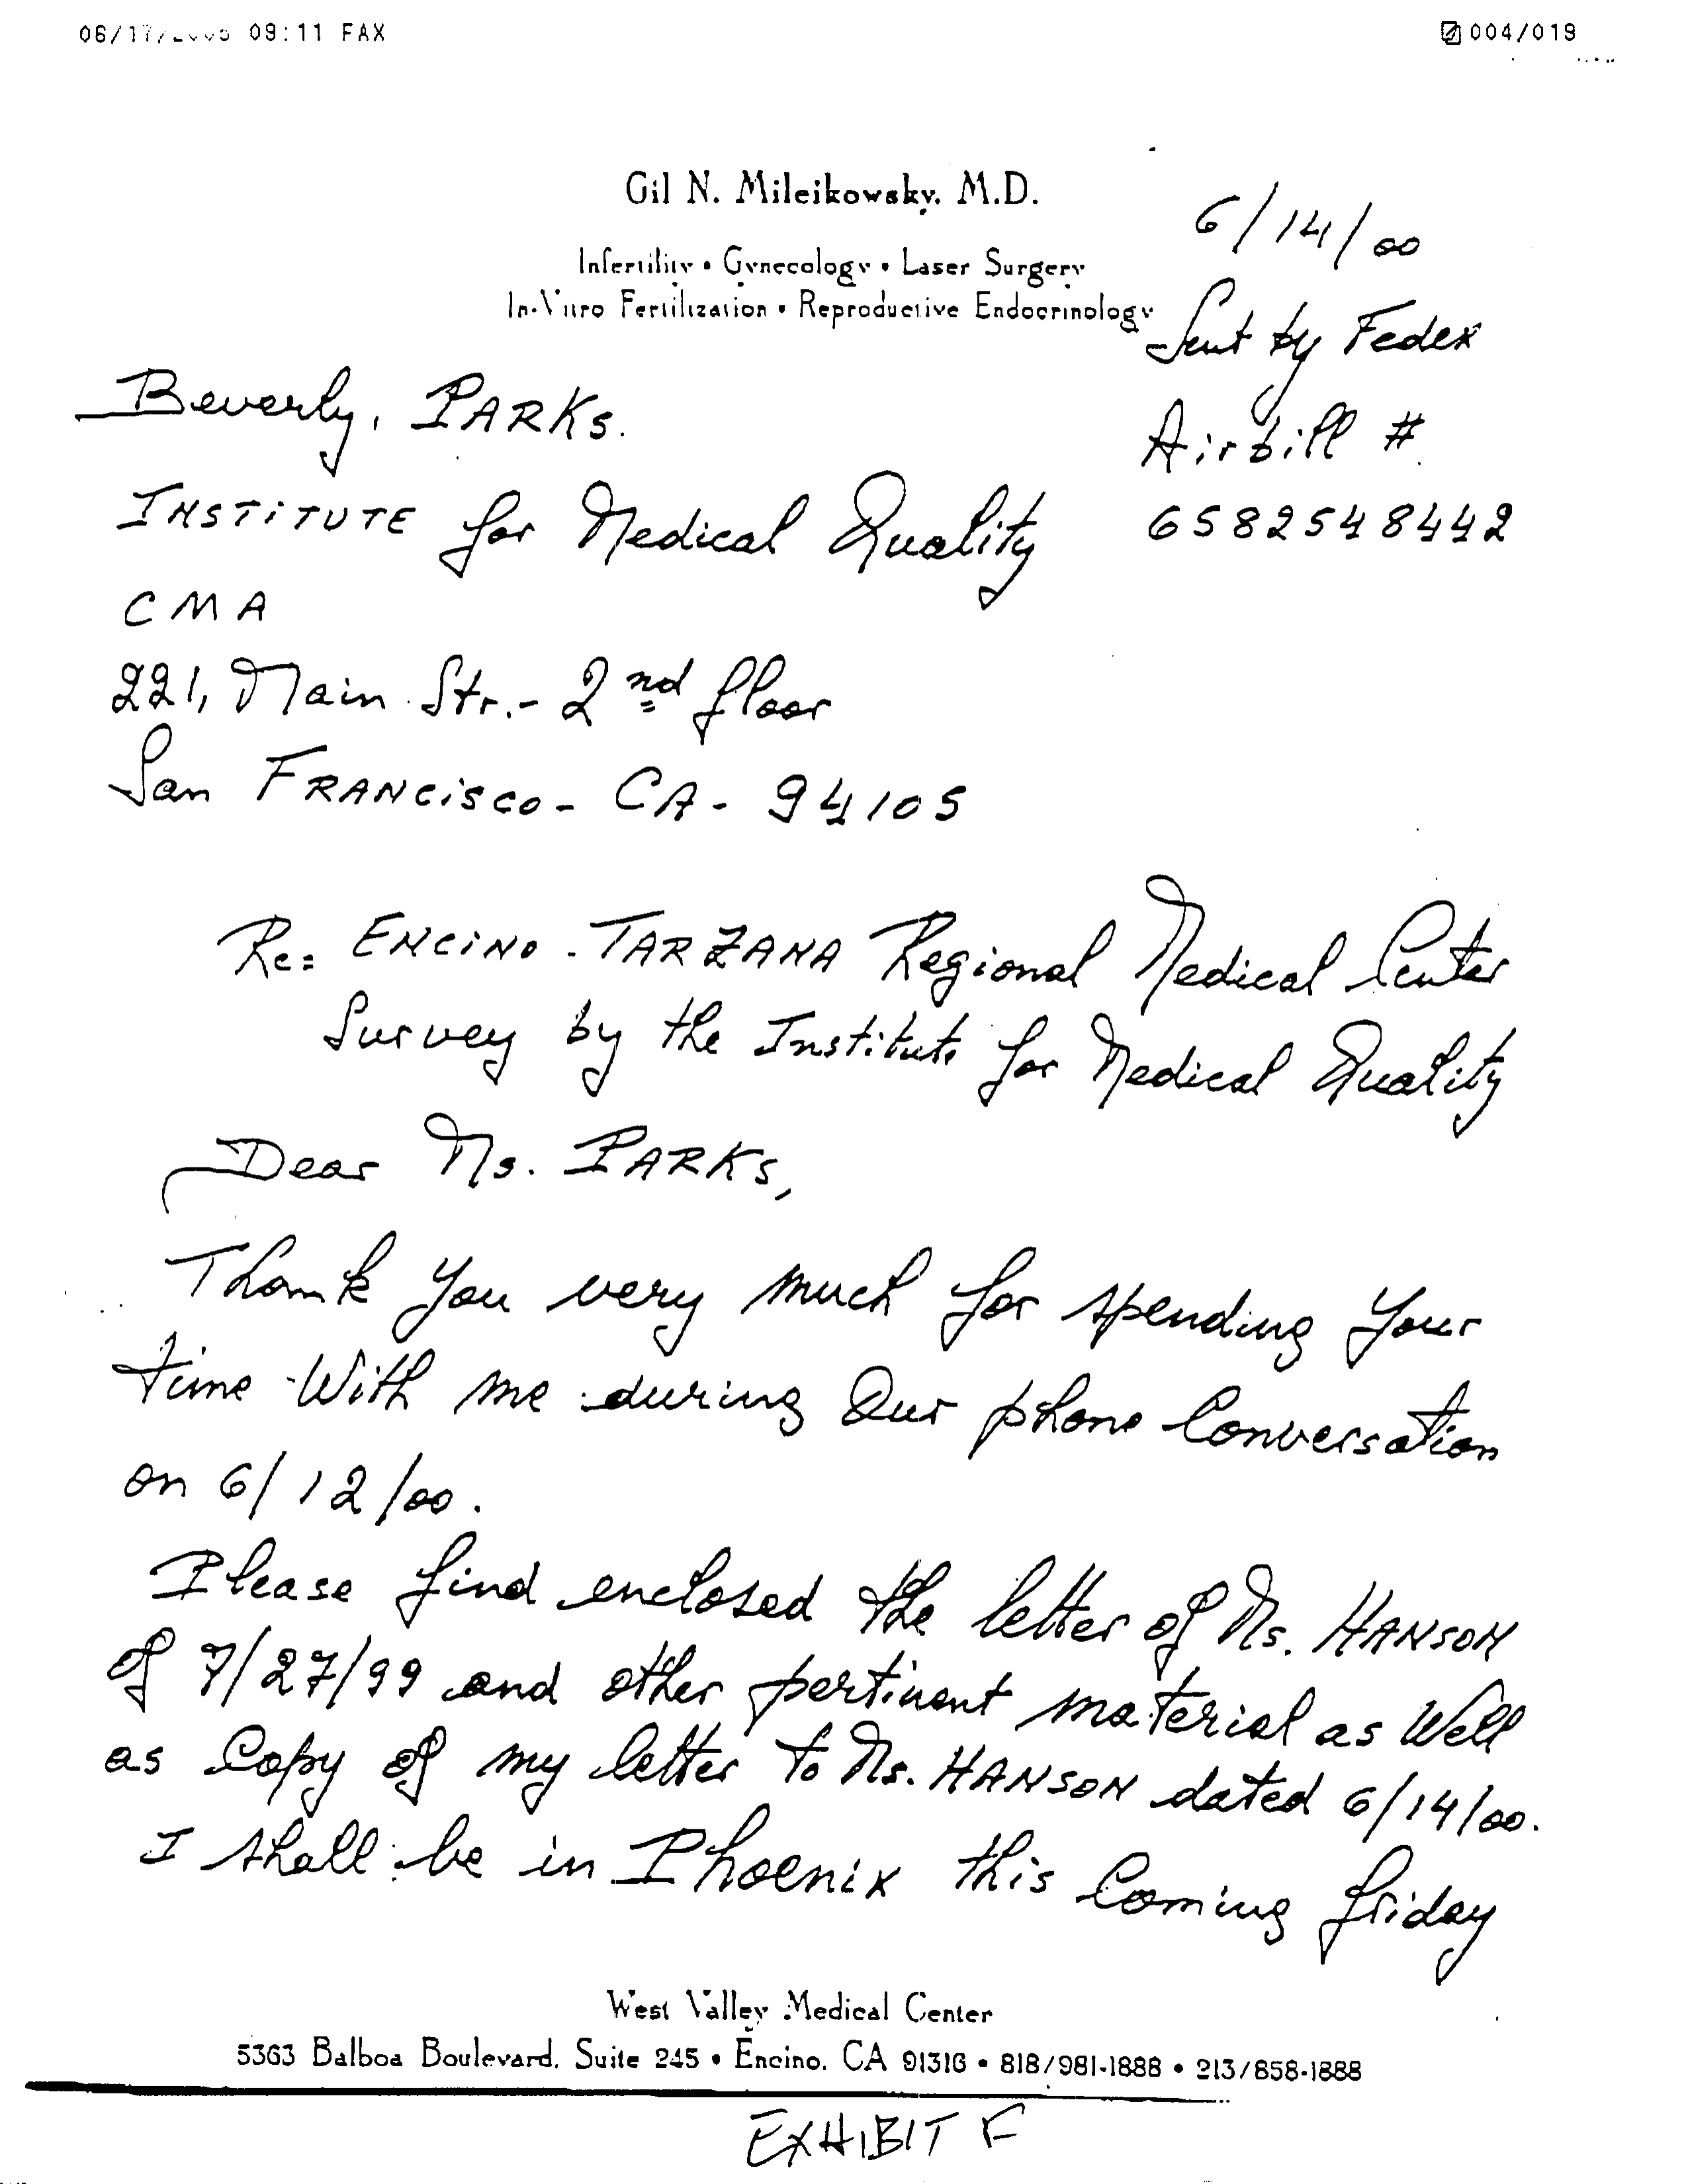 09:11 FAX
004/019
Gil N. Mileikowsky, M.D.
6/14/00
Infertility • Gynecology • Laser Surgery
In-Vitro Fertilization • Reproductive Endocrinology
Sent by Fedex
Beverly, PARKS.
Airbill #
INSTITUTE for Medical Quality
6582548442
CMA
221, Main Str.- 2nd floor
San FRANCISCO - CA - 94105
Re: ENCINO - TARZANA Regional Medical Center
Survey by the Institute for Medical Quality
Dear Ms. PARKS,
Thank you very much for spending your
time With me during Our phone Conversation
on 6/12/00.
Please find enclosed the letter of Ms. HANSON
of 7/27/99 and other pertinent material as Well
as Copy of my letter to Ms. HANSON dated 6/14/00.
I shall be in Phoenix this Coming friday
West Valley Medical Center
5363 Balboa Boulevard, Suite 245 • Encino, CA 91316 • 818/981-1888 • 213/858-1888
EXHIBIT F